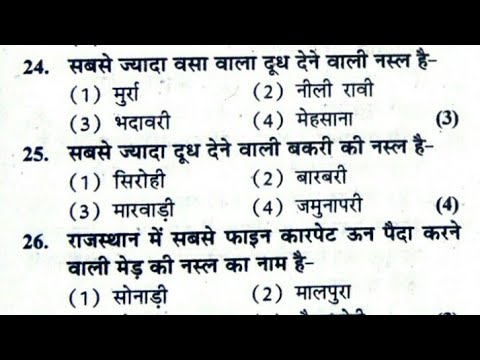 24. सबसे ज्यादा वसा वाला दूध देने वाली नस्ल है-
(1) मुर्रा (2) नीली रावी
(3) भदावरी (4) मेहसाना (3)
25. सबसे ज्यादा दूध देने वाली बकरी की नस्ल है-
(1) सिरोही (2) बारबरी
(3) मारवाड़ी (4) जमुनापरी (4)
26. राजस्थान में सबसे फाइन कारपेट ऊन पैदा करने
वाली मेड़ की नस्ल का नाम है-
(1) सोनाड़ी (2) मालपुरा